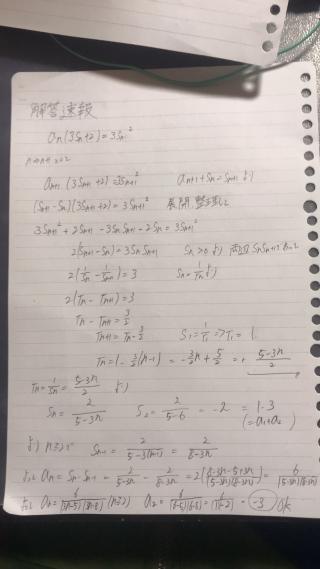 解答速報
an(3Sn+2)=3Sn²
an+1(3Sn+1+2)=3Sn+1² an+1+Sn=Sn+1より
(Sn+1-Sn)(3Sn+1+2)=3Sn+1² 展開、整理して
3Sn+1²+2Sn+1-3SnSn+1-2Sn=3Sn+1²
2(Sn+1-Sn)=3SnSn+1
2(1/Sn-1/Sn+1)=3 Sn=1/Tnより
2(Tn-Tn+1)=3
Tn-Tn+1=3/2
Tn+1=Tn-3/2 S1=1/T1=>T1=1
Tn=1-3/2(n-1)=-3/2n+5/2= 5-3n/2
Tn=1/Sn=5-3n/2 より
Sn=2/5-3n S2=2/5-6=-2=1-3
(=a1+a2)
より n≧2で Sn-1=2/5-3(n-1)=2/8-3n
よって an=Sn-Sn-1=2/5-3n-2/8-3n=2((8-3n-5+3n)/(5-3n)(8-3n))=6/(5-3n)(8-3n)
よって an=6/(3n-5)(3n-8)(n≧2) a2=6/(6-5)(6-8)=6/1(-2)=-3 ok